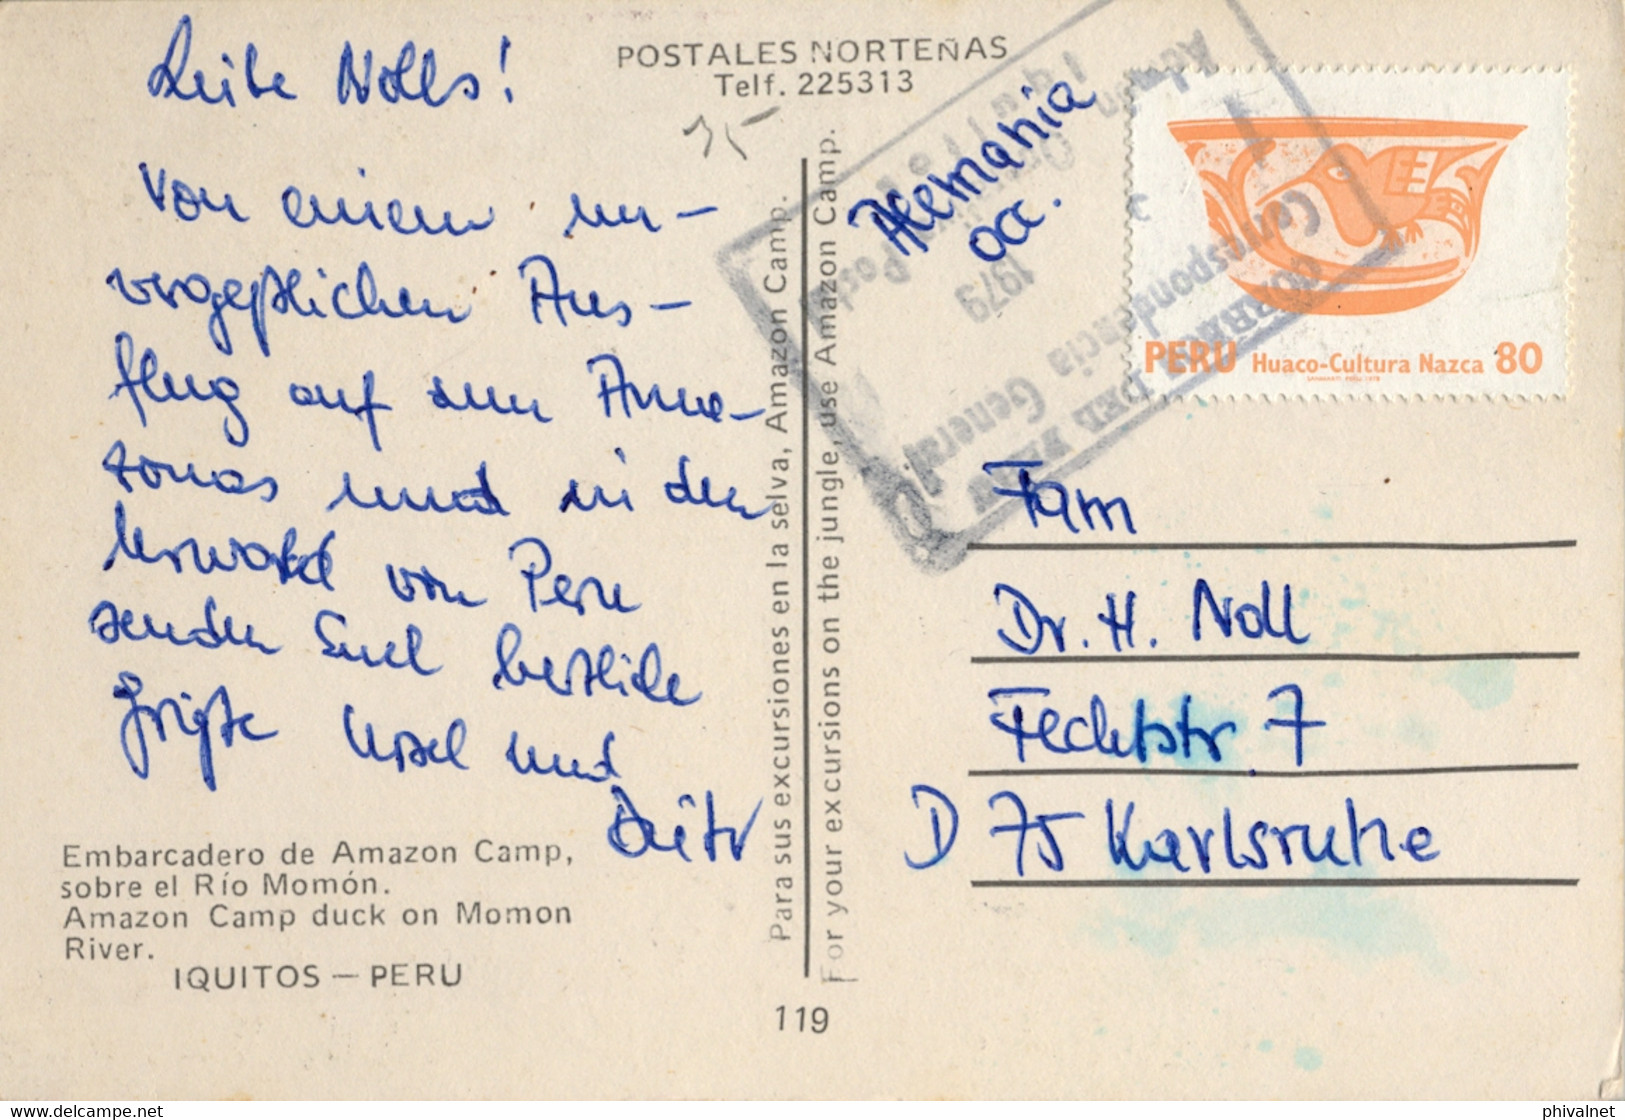 POSTALES NORTEÑAS
Telf. 225313
Liebe Nolls!
Von einem un-
vergeßlichen Aus-
flug auf dem Ama-
zonas und in den
Urwald von Peru
senden Euch herzliche
Grüße Ursel und
Dieter
Embarcadero de Amazon Camp,
sobre el Río Momón.
Amazon Camp duck on Momon
River.
IQUITOS — PERU
75
Para sus excursiones en la selva, Amazon Camp.
For your excursions on the jungle, use Amazon Camp.
119
Alemania
occ.
PERU Huaco-Cultura Nazca 80
CORREOS DEL PERU
Correspondencia General
1979
Fam
Dr. H. Noll
Fechtstr. 7
D 75 Karlsruhe
http://www.delcampe.net
phivalnet